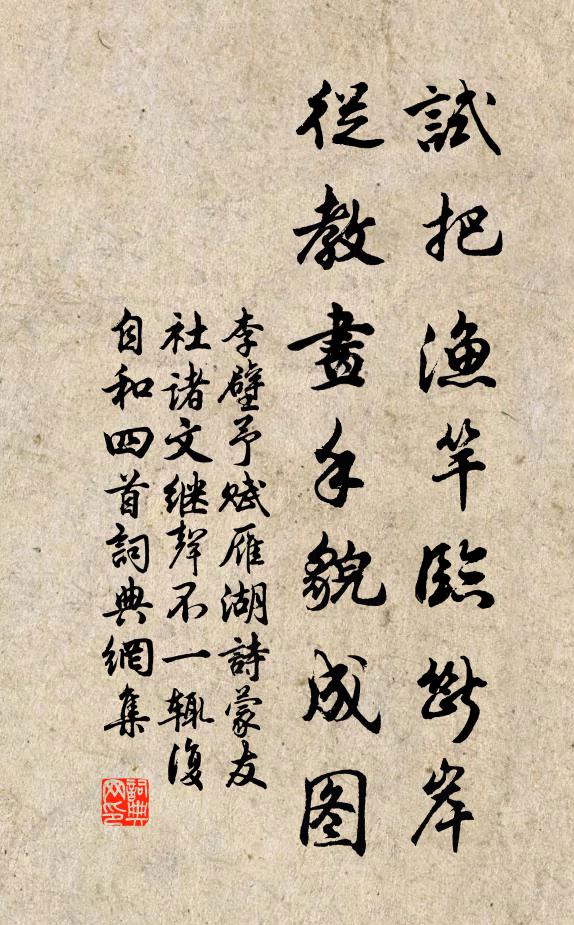 試把漁竿臨斷岸
從教畫手貌成图
李壁予賦雁湖詩蒙友
社諸文継聲不一輒復
自和四首詞典網集
詞典
网印